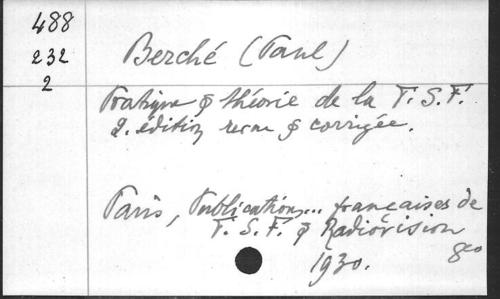 488
232
2
Berché (Paul)
Pratique & théorie de la T.S.F.
2. édition revue & corrigée.
Paris, Publications... françaises de
T.S.F. & Radiovision
8co
1930.